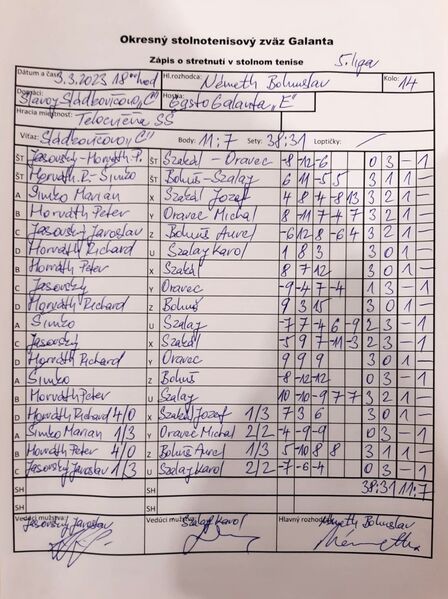 Okresný stolnotenisový zväz Galanta
Zápis o stretnutí v stolnom tenise 5. liga
Dátum a čas: 3.3.2023 18⁰⁰ hod Hl.rozhodca: Németh Bohuslav Kolo: 14
Domáci: Slavoj Sládkovičovo „C" Hostia: Gasto Galanta „E"
Hracia miestnosť: Telocvičňa SŠ
Víťaz: Sládkovičovo „C" Body: 11:7 Sety: 38:31 Loptičky: /
ŠT Jasovský - Horváth P. ŠT Szakál - Oravec -8 -12 -6 0 3 - 1
ŠT Horváth R. - Šimko ŠT Bohuš - Szalay 6 11 -5 5 3 1 1 -
A Šimko Marián X Szakál Jozef 4 8 -4 -8 13 3 2 1 -
B Horváth Peter Y Oravec Michal 8 -11 7 -4 7 3 2 1 -
C Jasovský Jaroslav Z Bohuš Aurel -6 12 8 -6 4 3 2 1 -
D Horváth Richard U Szalay Karol 1 8 3 3 0 1 -
B Horváth Peter X Szakál 8 7 12 3 0 1 -
C Jasovský Y Oravec -9 -4 7 -4 1 3 - 1
D Horváth Richard Z Bohuš 9 3 15 3 0 1 -
A Šimko U Szalay -7 7 -4 6 -9 2 3 - 1
C Jasovský X Szakál -5 9 7 -11 -3 2 3 - 1
D Horváth Richard Y Oravec 9 9 9 3 0 1 -
A Šimko Z Bohuš -8 -12 -12 0 3 - 1
B Horváth Peter U Szalay 10 10 -9 -7 7 3 2 1 -
D Horváth Richard 4/0 X Szakál Jozef 1/3 7 3 6 3 0 1 -
A Šimko Marián 1/3 Y Oravec Michal 2/2 -4 -9 -9 0 3 - 1
B Horváth Peter 4/0 Z Bohuš Aurel 1/3 5 -10 8 8 3 1 1 -
C Jasovský Jaroslav 1/3 U Szalay Karol 2/2 -7 -6 -4 0 3 - 1
SH SH 38:31 11:7
SH SH
Vedúci mužstva: Jasovský Jaroslav Vedúci mužstva: Szalay Karol Hlavný rozhodca: Németh Bohuslav